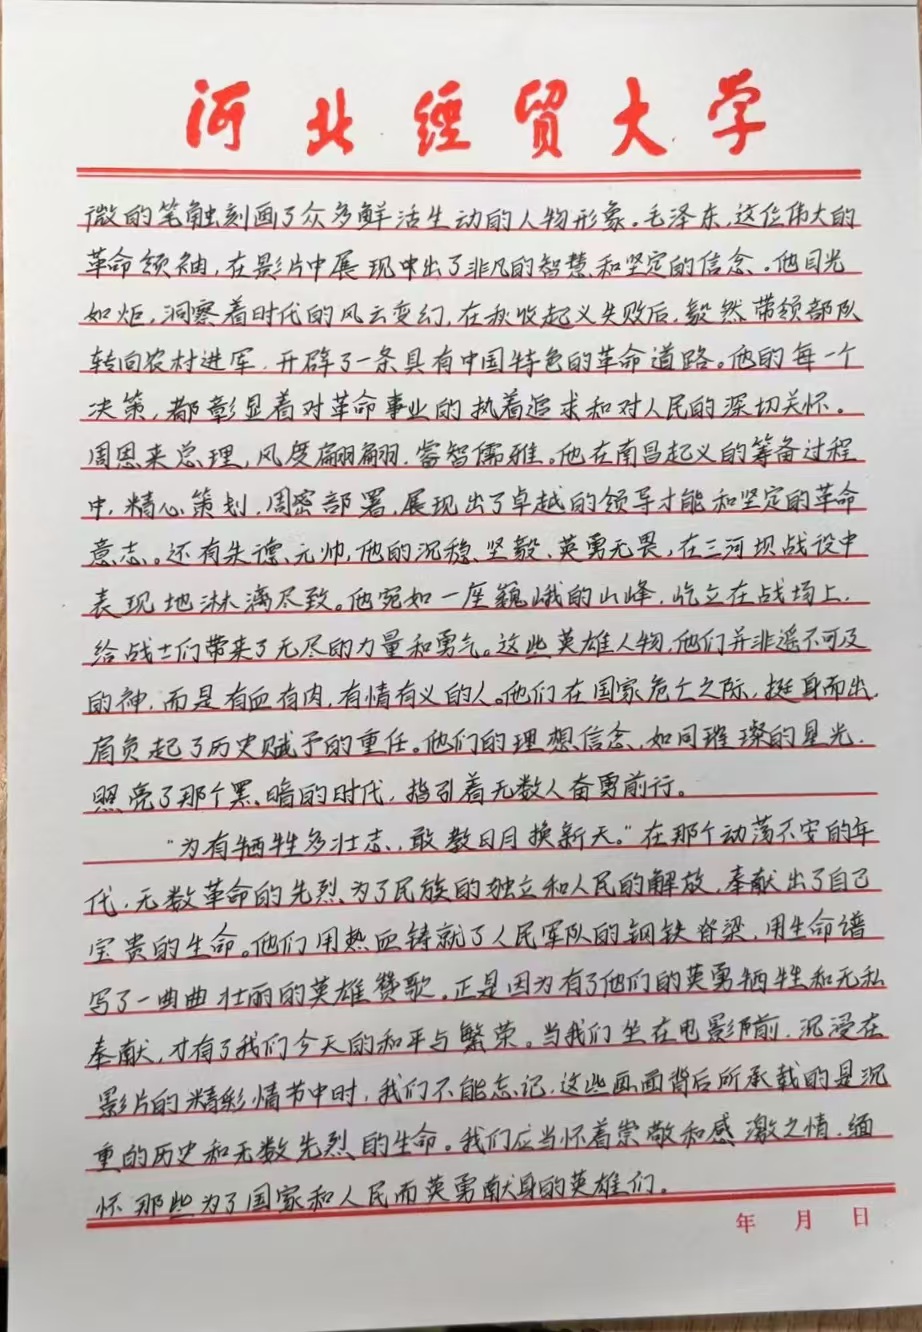 河北经贸大学
微的笔触刻画了众多鲜活生动的人物形象。毛泽东,这位伟大的
革命领袖,在影片中展现中出了非凡的智慧和坚定的信念。他目光
如炬,洞察着时代的风云变幻,在秋收起义失败后,毅然带领部队
转向农村进军,开辟了一条具有中国特色的革命道路。他的每一个
决策,都彰显着对革命事业的执着追求和对人民的深切关怀。
周恩来总理,风度翩翩,睿智儒雅。他在南昌起义的筹备过程
中,精心策划,周密部署,展现出了卓越的领导才能和坚定的革命
意志。还有朱德元帅,他的沉稳、坚毅、英勇无畏,在三河坝战役中
表现地淋漓尽致。他宛如一座巍峨的山峰,屹立在战场上,
给战士们带来了无尽的力量和勇气。这些英雄人物,他们并非遥不可及
的神,而是有血有肉,有情有义的人。他们在国家危亡之际,挺身而出,
肩负起了历史赋予的重任。他们的理想信念,如同璀璨的星光,
照亮了那个黑暗的时代,指引着无数人奋勇前行。
“为有牺牲多壮志,敢教日月换新天。”在那个动荡不安的年
代,无数革命的先烈为了民族的独立和人民的解放,奉献出了自己
宝贵的生命。他们用热血铸就了人民军队的钢铁脊梁,用生命谱
写了一曲曲壮丽的英雄赞歌。正是因为有了他们的英勇牺牲和无私
奉献,才有了我们今天的和平与繁荣。当我们坐在电影前,沉浸在
影片的精彩情节中时,我们不能忘记,这些画面背后所承载的是沉
重的历史和无数先烈的生命。我们应当怀着崇敬和感激之情,缅
怀那些为了国家和人民而英勇献身的英雄们。
年 月 日